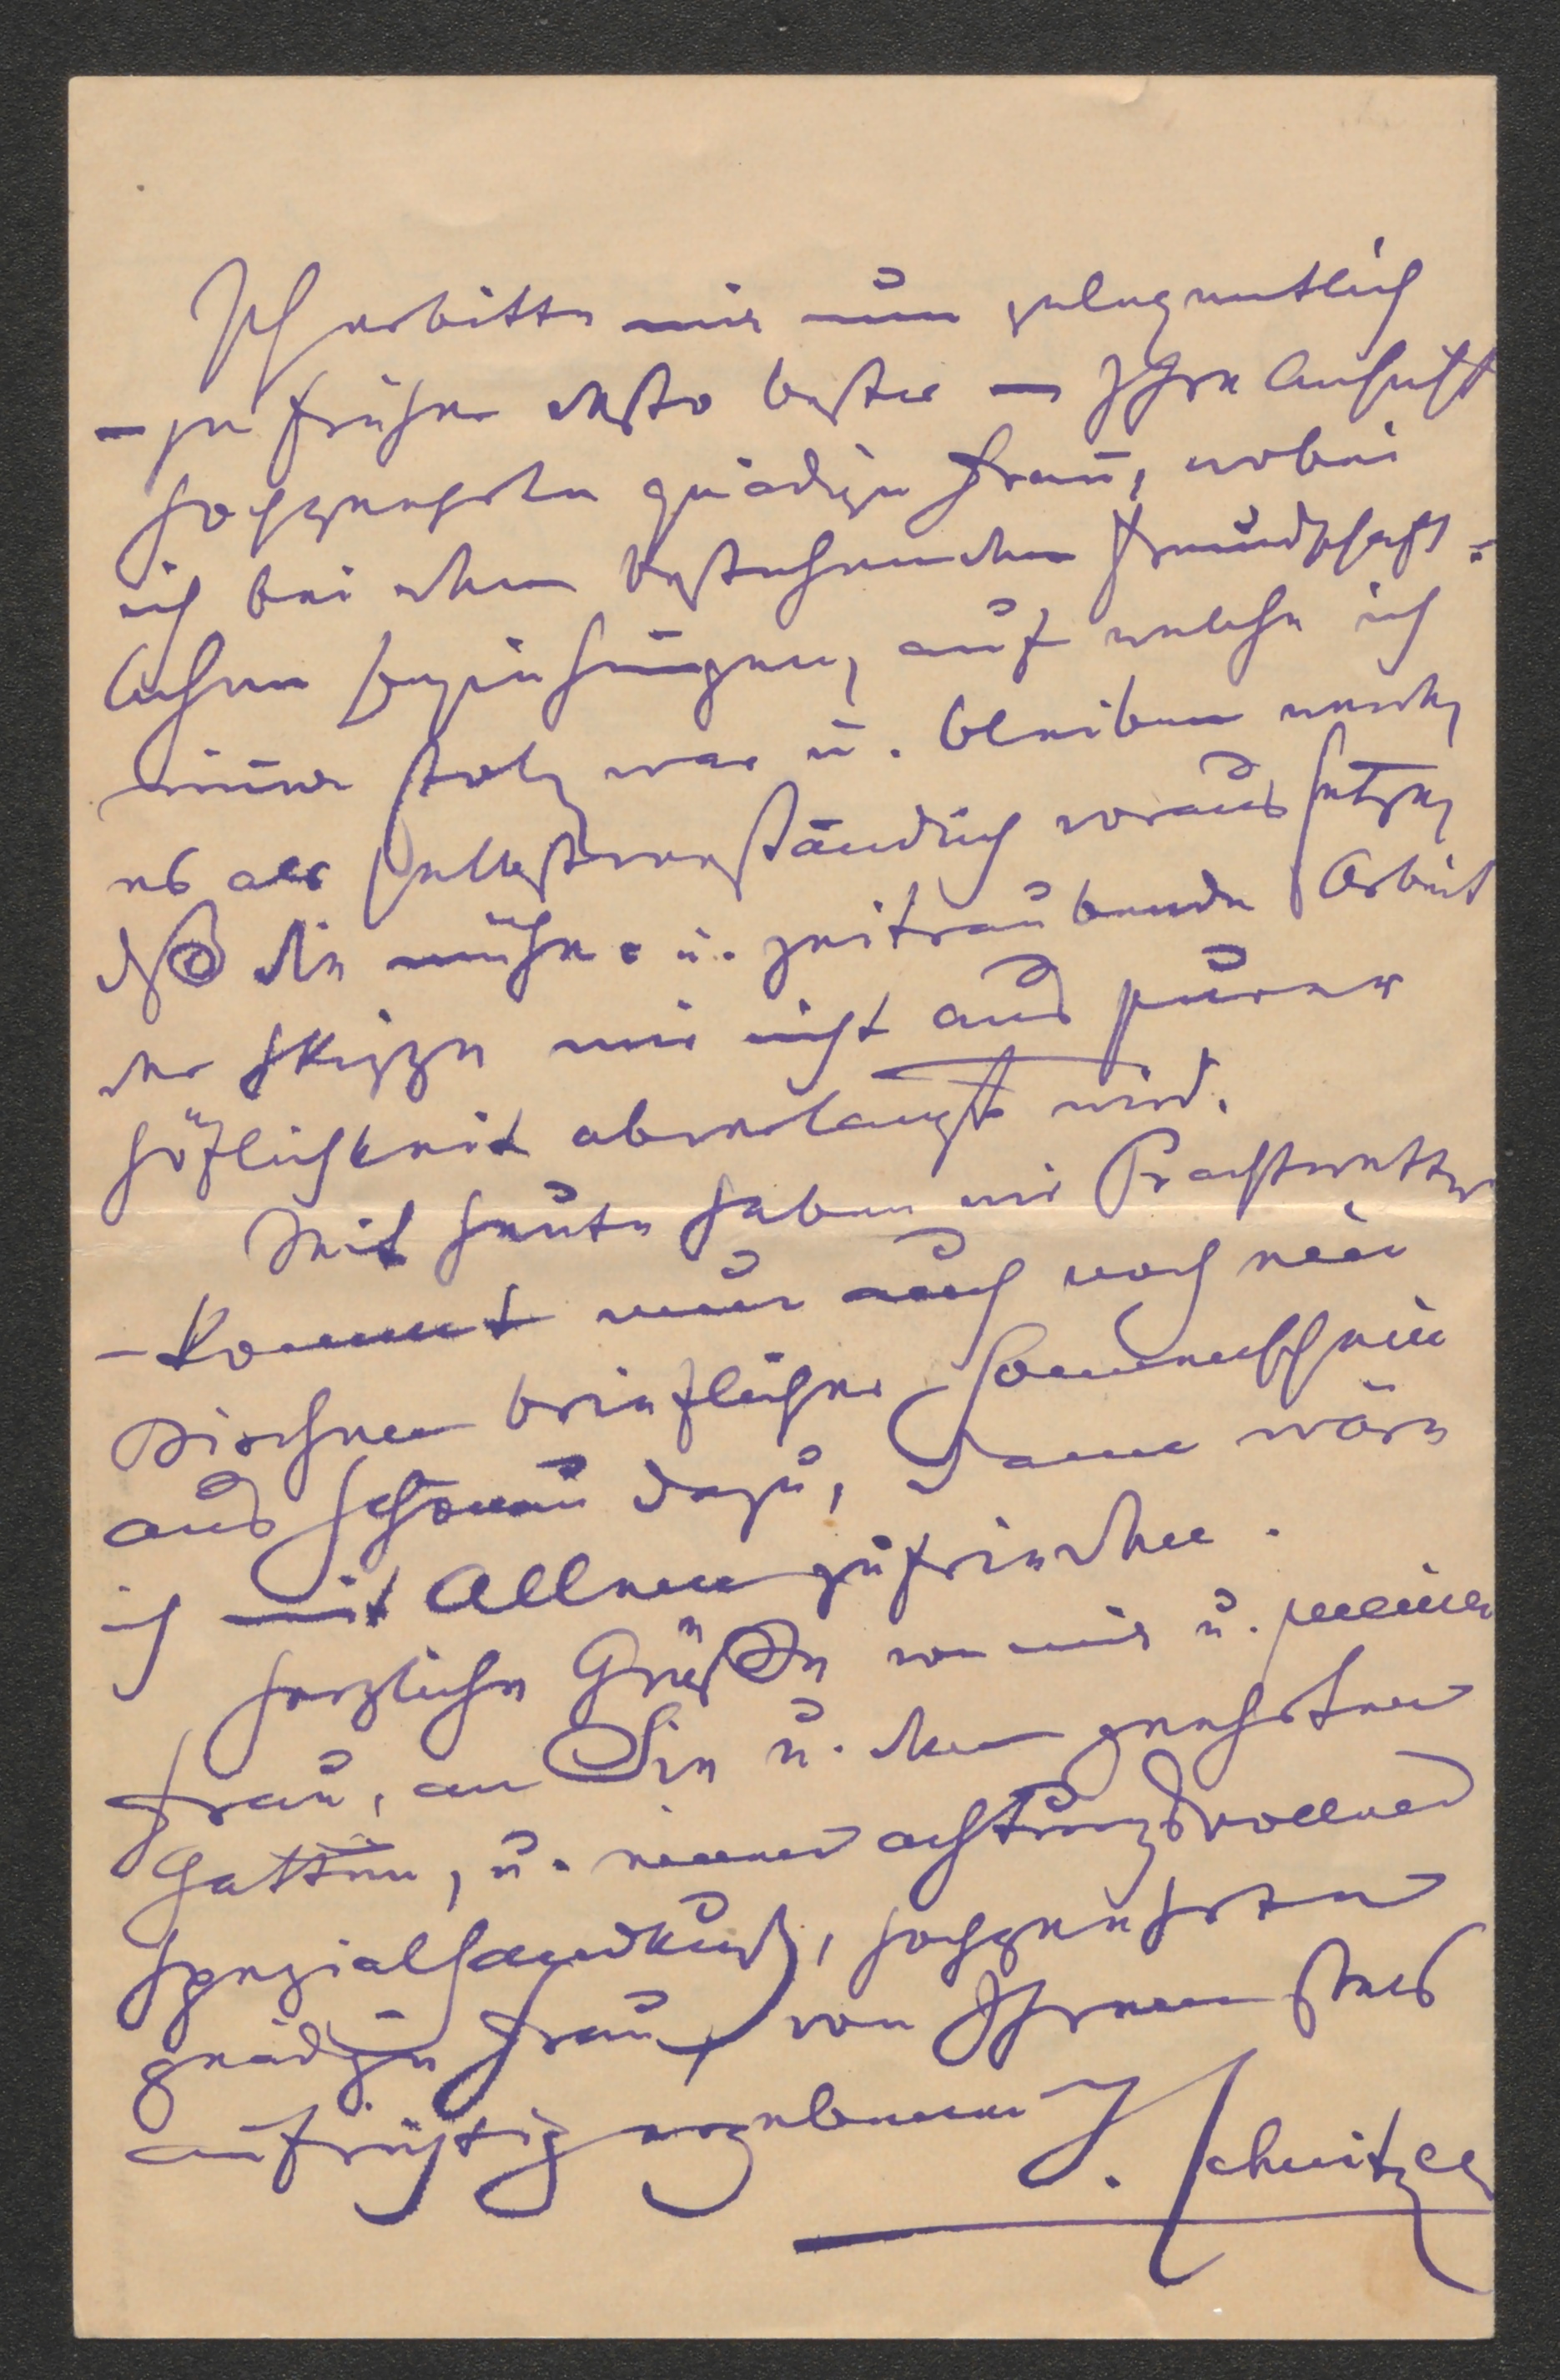 Ich erbitte mir nun gelegentlich
– je früher desto bester – Ihre Ansicht
hochgeehrte gnädige Frau, wobei
ich bei den bestehenden freundschaft-
lichen Beziehungen, auf welche ich
immer stolz war u. bleiben werde,
es als selbstverständlich voraus setze,
daß die mühe- u. zeitraubende Arbeit
der Skizze mir nicht aus purer
Höflichkeit abverlangt wird.
Seit heute haben wir Prachtwetter
– kommt nun auch noch ein
bischen brieflicher Sonnenschein
aus Schönau dazu, dann wäre
ich mit Allem zufrieden.
Herzliche Grüße von mir u. meiner
Frau, an Sie u. den geehrten
Gatten, u. einen achtungsvollen
Spezialhandkuß, hochgeehrte
gnädige Frau, von Ihrem stets
aufrichtig ergebenen J. Schnitzer